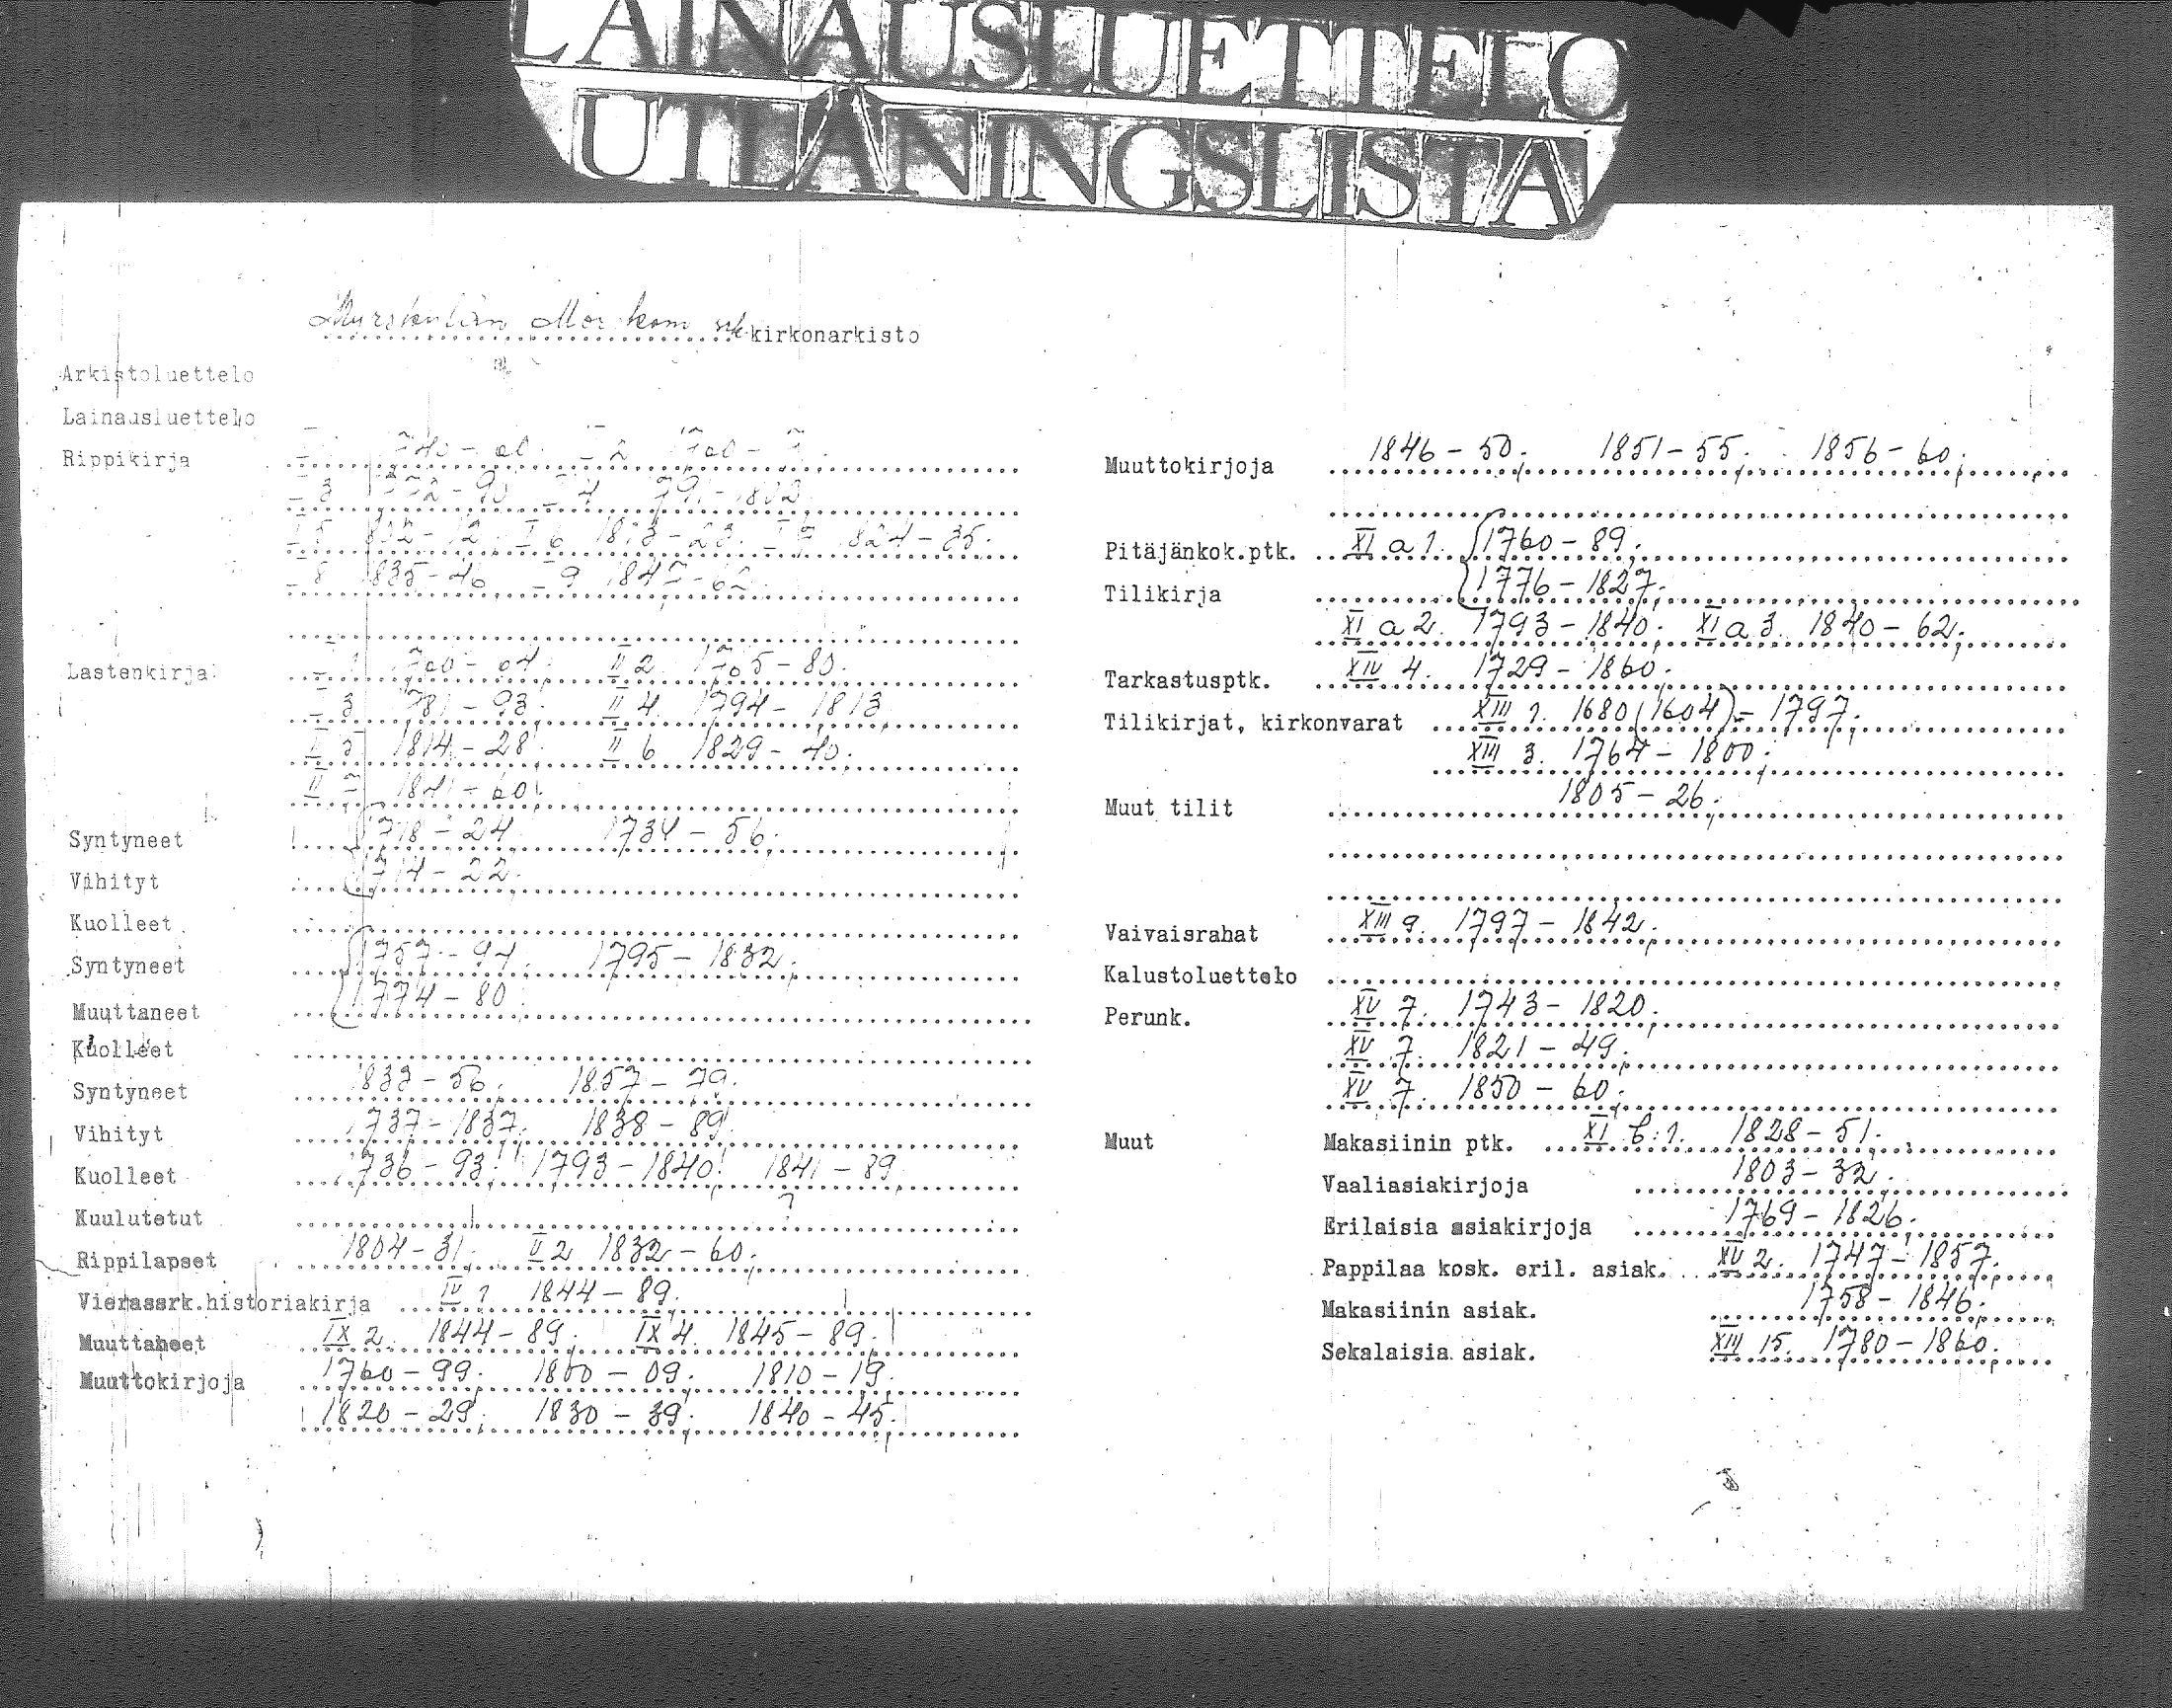 LAINAUSLUETTELO
UTLÅNINGSLISTA
Myrskylän Mörskom srk kirkonarkisto
Arkistoluettelo
Lainausluettelo
Rippikirja
I 3 1772-90 I 4 1791-1802
I 5 1802-12. I 6 1813-23. I 7 1824-35.
I 8 1835-46 I 9 1847-62
Lastenkirja II 2 1765-80.
1781-93. II 4. 1794-1813
II 5 1814-28. II 6 1829-40.
II 7 1841-60.
Syntyneet 1718-24 1734-56.
Vihityt 1714-22.
Kuolleet
Syntyneet 1757-94. 1795-1832.
Muuttaneet 1774-80.
Kuolleet
Syntyneet 1833-56. 1857-79.
Vihityt 1737-1837. 1838-89.
Kuolleet 1736-93. 1793-1840. 1841-89
Kuulutetut
Rippilapset 1804-31. II 2 1832-60.
Vierassrk.historiakirja IV 1 1844-89.
Muuttaneet IX 2. 1844-89. IX 4. 1845-89.
Muuttokirjoja 1760-99. 1800-09. 1810-19.
1820-29. 1830-39. 1840-45.
Muuttokirjoja 1846-50. 1851-55. 1856-60.
Pitäjänkok.ptk. XI a 1. 1760-89.
Tilikirja 1776-1827.
XI a 2. 1793-1840. XI a 3. 1840-62.
Tarkastusptk. XIV 4. 1729-1860.
Tilikirjat, kirkonvarat XIII 1. 1680(1604)-1797.
XIII 3. 1764-1800.
Muut tilit 1805-26.
Vaivaisrahat XIII 9. 1797-1842.
Kalustoluettelo
Perunk. XV 7. 1743-1820.
XV 7. 1821-49.
XV 7. 1850-60.
Muut Makasiinin ptk. XI b:1. 1828-51.
Vaaliasiakirjoja 1803-32.
Erilaisia asiakirjoja 1769-1826.
Pappilaa kosk. eril. asiak. XV 2. 1747-1857.
Makasiinin asiak. 1758-1846.
Sekalaisia asiak. XIII 15. 1780-1860.